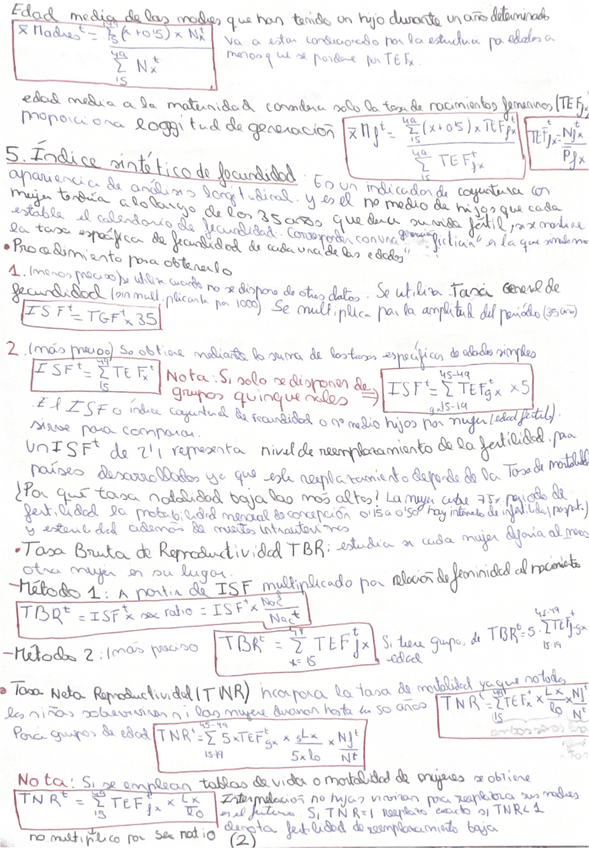 Edad media de las madres que han tenido un hijo durante un año determinado
x̄ Madres^t = Σ_15^49 (x+0'5) × N_x^t / Σ_15^49 N_x^t
va a estar condicionado por la estructura por edades a
menos que se pondere por TEFx.
edad media a la maternidad considera solo la tasa de nacimientos femeninos (TEFfx)
proporciona longitud de generación
x̄ Mf^t = Σ_15^49 (x+0'5) × TEF_fx^t / Σ_15^49 TEF_fx^t
TEF_fx^t = Nf_x^t / Pf_x^t
5. Índice sintético de fecundidad:
apariencia de análisis longitudinal. Es un indicador de coyuntura con
y es el nº medio de hijos que cada
mujer tendría a lo largo de los 35 años que dura su vida fértil, si se mantiene
estable el calendario de fecundidad. Corresponde con una "ficticia" en la que
la tasa específica de fecundidad de cada una de las edades
• Procedimiento para obtenerlo
1. (menos preciso) se utiliza cuando no se dispone de otros datos. Se utiliza Tasa General de
fecundidad (sin multiplicarla por 1000) Se multiplica por la amplitud del periodo (35 años)
ISF^t = TGF^t × 35
2. (más preciso) Se obtiene mediante la suma de las tasas específicas de edades simples
ISF^t = Σ_15^49 TEF_x^t
Nota: Si solo se dispone de
grupos quinquenales ⇒
ISF^t = Σ_{gx15-19}^{45-49} TEF_gx^t × 5
El ISF o índice coyuntural de fecundidad o nº medio hijos por mujer (edad fértil).
sirve para comparar.
Un ISF^t de 2'1 representa nivel de reemplazamiento de la fertilidad. para
países desarrollados ya que este reemplazamiento depende de la Tasa de mortalidad
¿Por qué tasa natalidad baja las más altas? La mujer cubre 75% periodo de
fertilidad la probabilidad mensual de concepción 0'15 a 0'50 hay intervalo de infertilidad
y esterilidad además de muertes intrauterinas
• Tasa Bruta de Reproductividad TBR: estudia si cada mujer dejaría al menos
otra mujer en su lugar.
- Método 1: A partir de ISF multiplicado por relación de feminidad al nacimiento
TBR^t = ISF^t × sex ratio = ISF^t × Nac^t / Nac^t
- Método 2: (más preciso
TBR^t = Σ_{x=15}^{49} TEF_fx^t
Si tiene grupo de
edad
TBR^t = 5 · Σ_{15-19}^{45-49} TEF_fgx^t
• Tasa Neta Reproductividad (TNR) incorpora la tasa de mortalidad ya que no todas
las niñas sobreviven ni las mujeres duraran hasta los 50 años
TNR^t = Σ_15^49 TEF_x^t × Lx / l0 × Nf^t / N^t
Para grupos de edad
TNR^t = Σ_{15-19}^{45-49} 5 × TEF_gx^t × 5Lx / 5×l0 × Nf^t / N^t
Nota: Si se emplean tablas de vida o mortalidad de mujeres se obtiene
TNR^t = Σ_15^49 TEF_fx^t × Lx / l0
Interpretación nº hijas vivirían para reemplazar sus madres
en el futuro. Si TNR=1 reemplazo exacto si TNR<1
denota fertilidad de reemplazamiento baja
no multiplico por sex ratio (2)